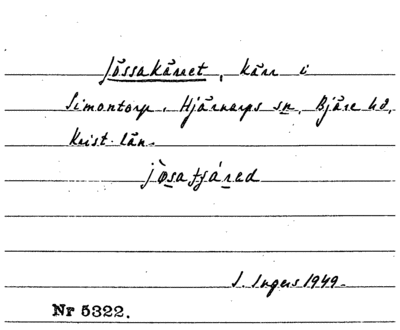 Jössakärret, kärr i
Simontorp. Hjärnarps sn, Bjäre hd,
Krist. län.
jösatjáred
I. Ingers 1949.
Nr 5322.